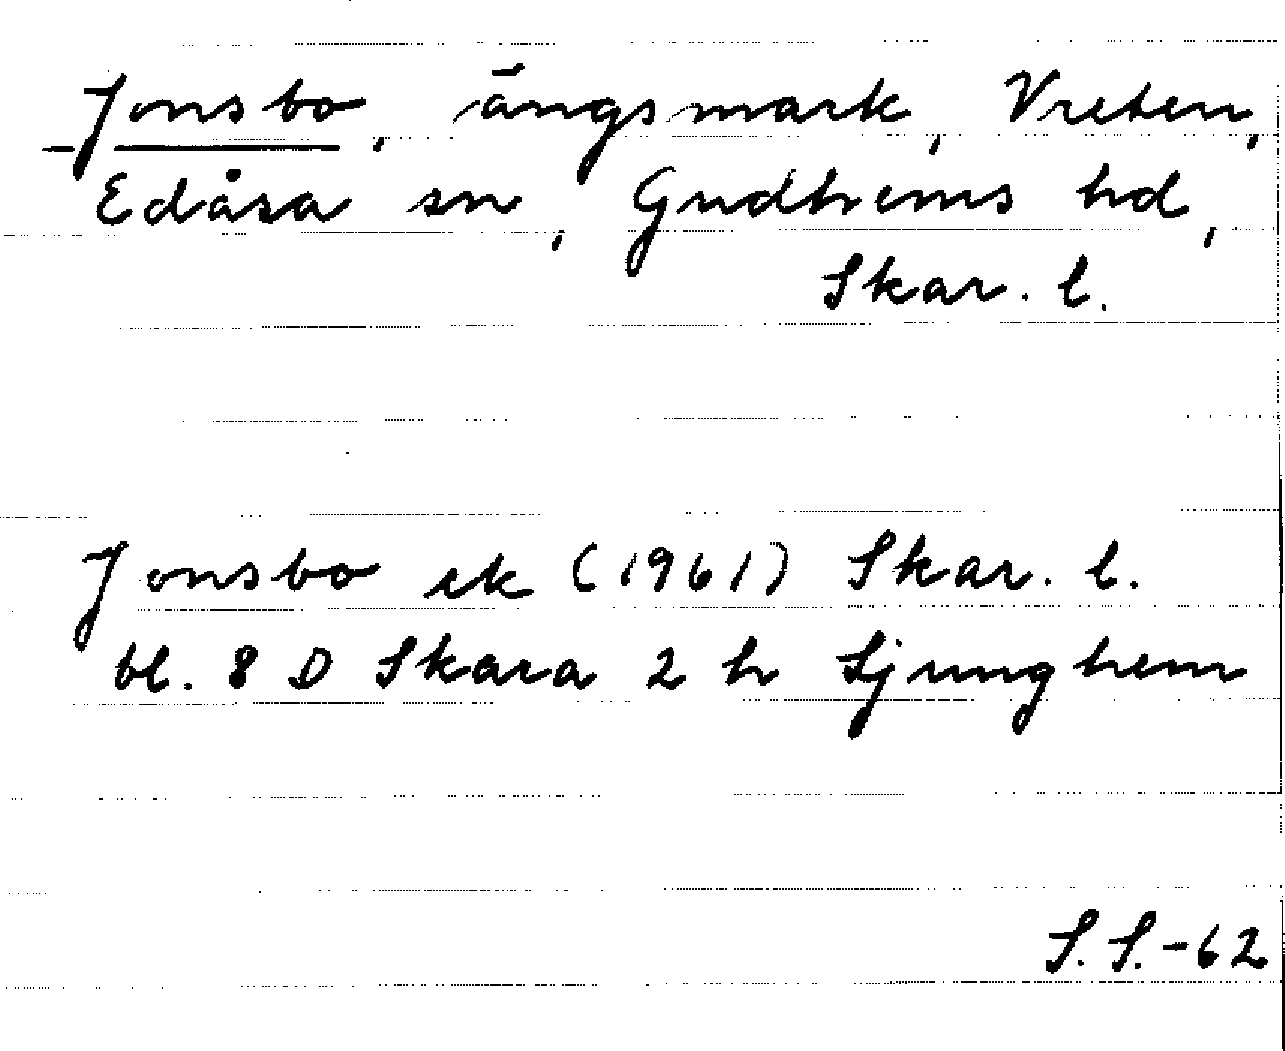 Jonsbo, ängsmark, Vreten,
Edåsa sn, Gudhems hd,
Skar. l.
Jonsbo ek (1961) Skar. l.
bl. 8 D Skara 2 h Ljunghem
S. S. -62